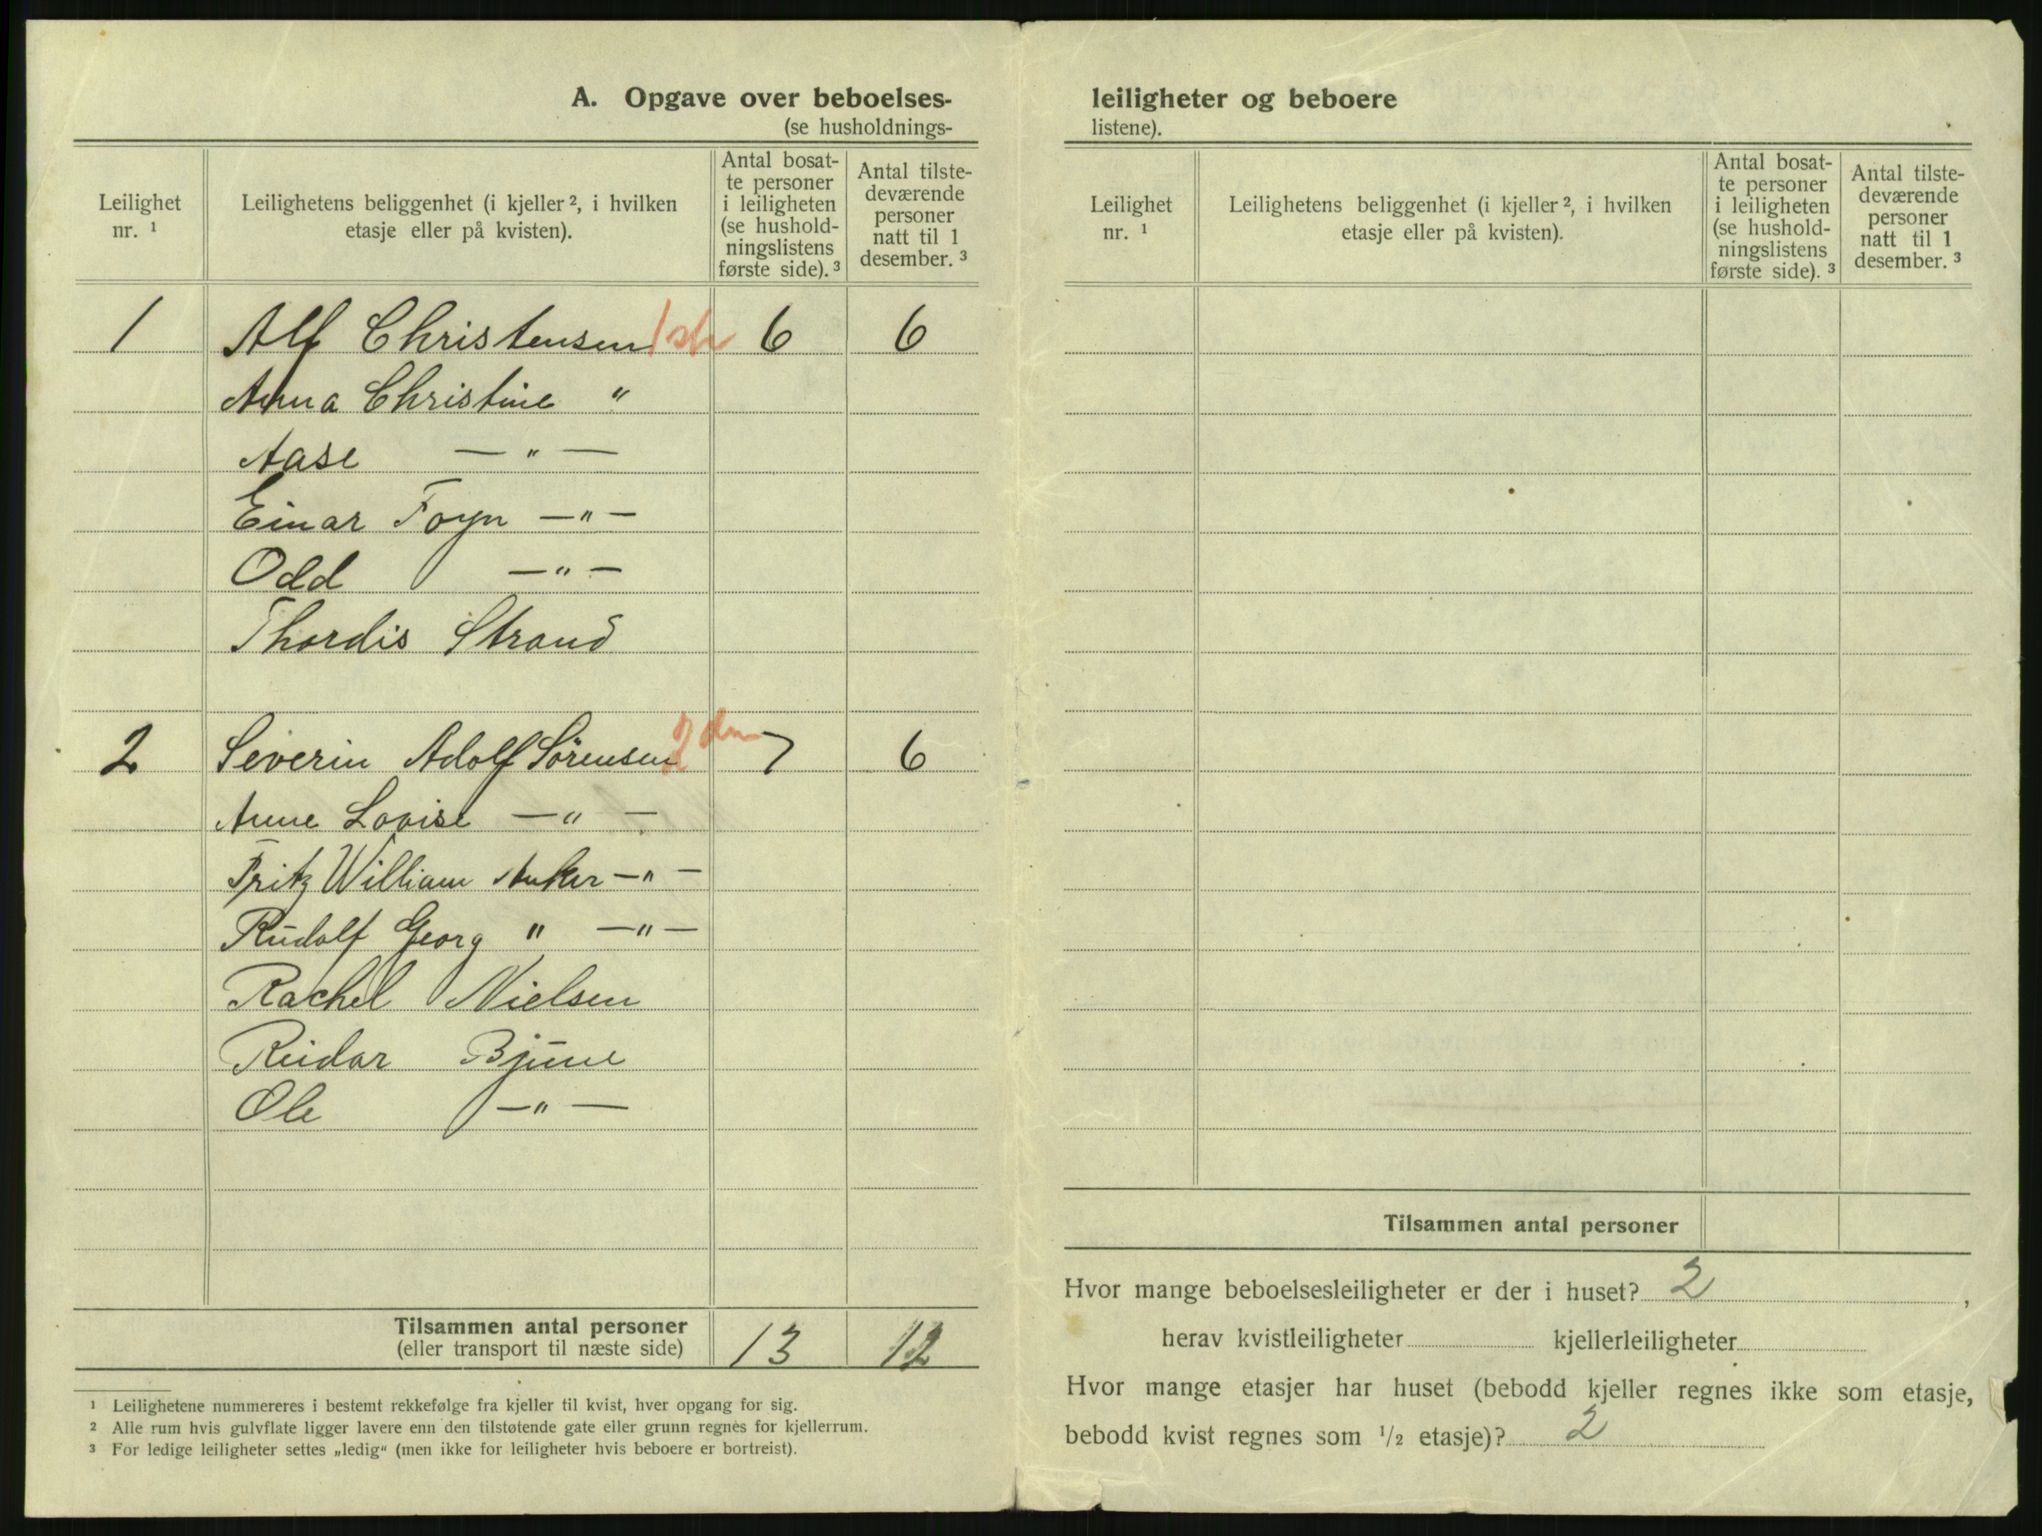 A. Opgave over beboelses-
(se husholdnings-
Leilighet nr. ¹
Leilighetens beliggenhet (i kjeller ², i hvilken etasje eller på kvisten).
Antal bosat-
te personer
i leiligheten
(se hushold-
ningslistens
første side). ³
Antal tilste-
deværende
personer
natt til 1
desember. ³
1 Alf Christensen 1 str 6 6
Anna Christine "
Aase — " —
Einar Foyn — " —
Odd — " —
Thordis Strand
2 Severin Adolf Sörensen 2 den 7 6
Anne Lovise — " —
Fritz William Anker — " —
Rudolf Georg " — " —
Rachel Nielsen
Reidar Bjune
Ole — " —
Tilsammen antal personer 13 12
(eller transport til næste side)
¹ Leilighetene nummereres i bestemt rekkefølge fra kjeller til kvist, hver opgang for sig.
² Alle rum hvis gulvflate ligger lavere enn den tilstøtende gate eller grunn regnes for kjellerrum.
³ For ledige leiligheter settes „ledig“ (men ikke for leiligheter hvis beboere er bortreist).
leiligheter og beboere
listene).
Leilighet nr. ¹
Leilighetens beliggenhet (i kjeller ², i hvilken etasje eller på kvisten).
Antal bosat-
te personer
i leiligheten
(se hushold-
ningslistens
første side). ³
Antal tilste-
deværende
personer
natt til 1
desember. ³
Tilsammen antal personer
Hvor mange beboelsesleiligheter er der i huset? 2 ,
herav kvistleiligheter kjellerleiligheter
Hvor mange etasjer har huset (bebodd kjeller regnes ikke som etasje,
bebodd kvist regnes som ½ etasje)? 2